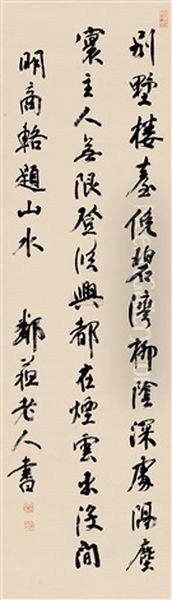 別墅樓臺俛碧灣柳陰深處隔塵
寰主人無限登臨興都在煙雲出沒間
明商輅題山水　鄰蘇老人書